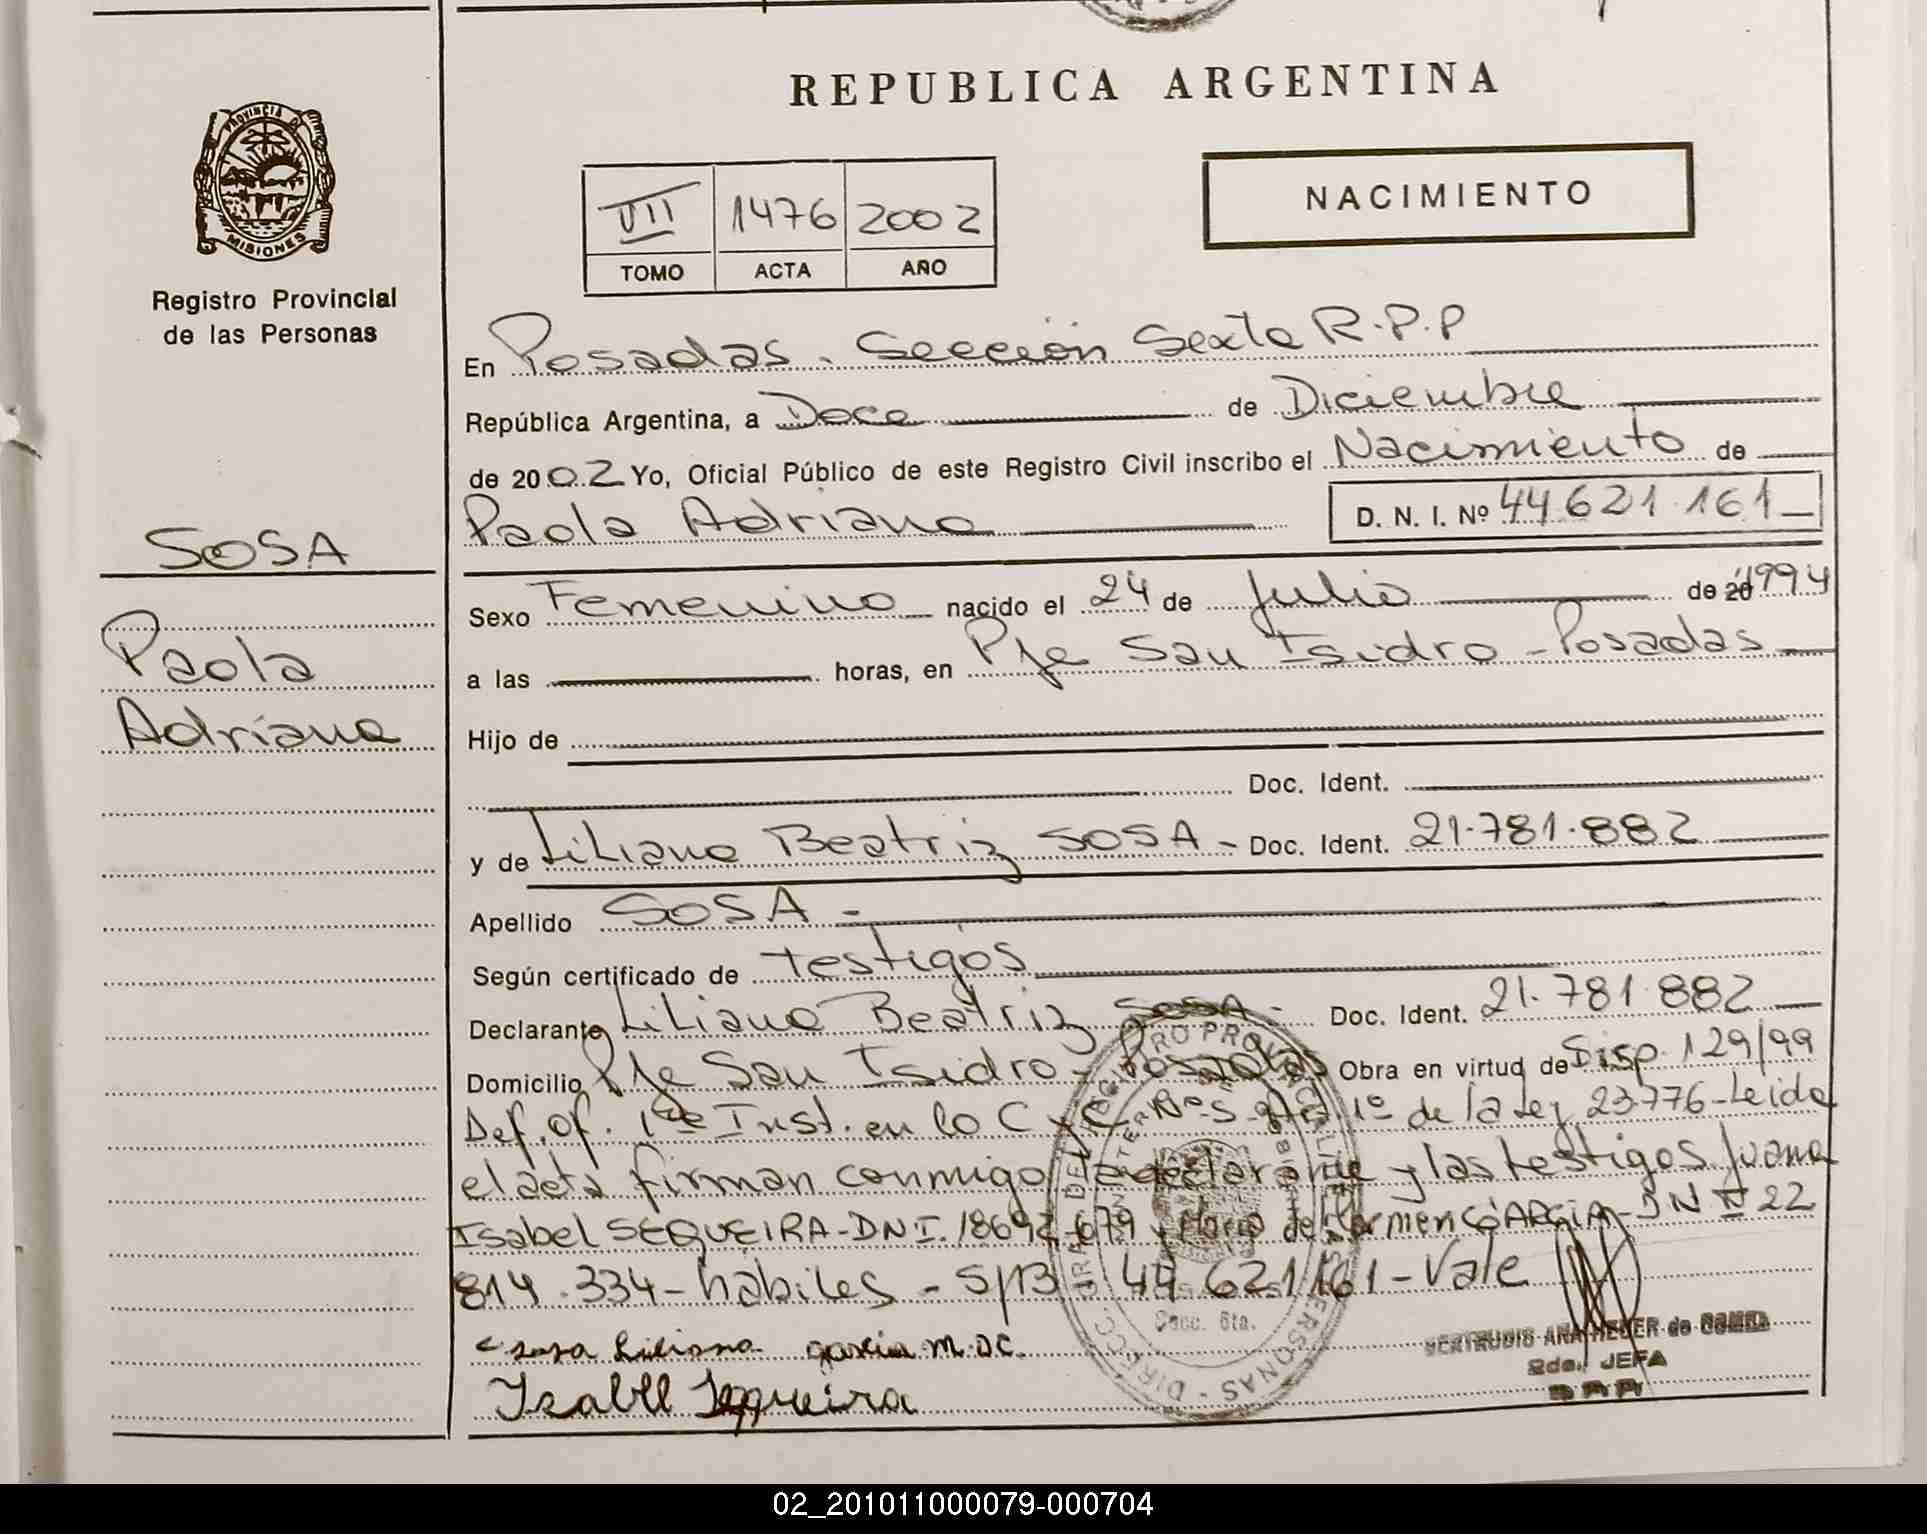 REPUBLICA ARGENTINA
PROVINCIA DE MISIONES
Registro Provincial
de las Personas
VII 1476 2002
TOMO ACTA AÑO
NACIMIENTO
En Posadas - Sección Sexta R.P.P
República Argentina, a Doce de Diciembre
de 2002 Yo, Oficial Público de este Registro Civil inscribo el Nacimiento de
Paola Adriana D. N. I. Nº 44.621.161
SOSA
Paola
Adriana
Sexo Femenino nacido el 24 de Julio de 20 1994
a las horas, en Pje San Isidro - Posadas
Hijo de
Doc. Ident.
y de Liliana Beatriz SOSA - Doc. Ident. 21.781.882
Apellido SOSA -
Según certificado de testigos
Declarante Liliana Beatriz SOSA - Doc. Ident. 21.781.882
Domicilio Pje San Isidro - Posadas Obra en virtud de Disp. 129/99
Def. Of. 1ra Inst. en lo C y C Nº 5 1º de la Ley 23.776 - Leida
el acta firman conmigo la declarante y las testigos Juana
Isabel SEQUEIRA - DNI. 18692.679 y Maria del Carmen GARCIA - DNI 22
814.334 - habiles - S/B 44.621161 - Vale
sosa Liliana garcia M.DC.
Isabel Sequeira
GERTRUDIS ANA HEDER de
2da. JEFA
R P P
Secc. 6ta.
02_201011000079-000704